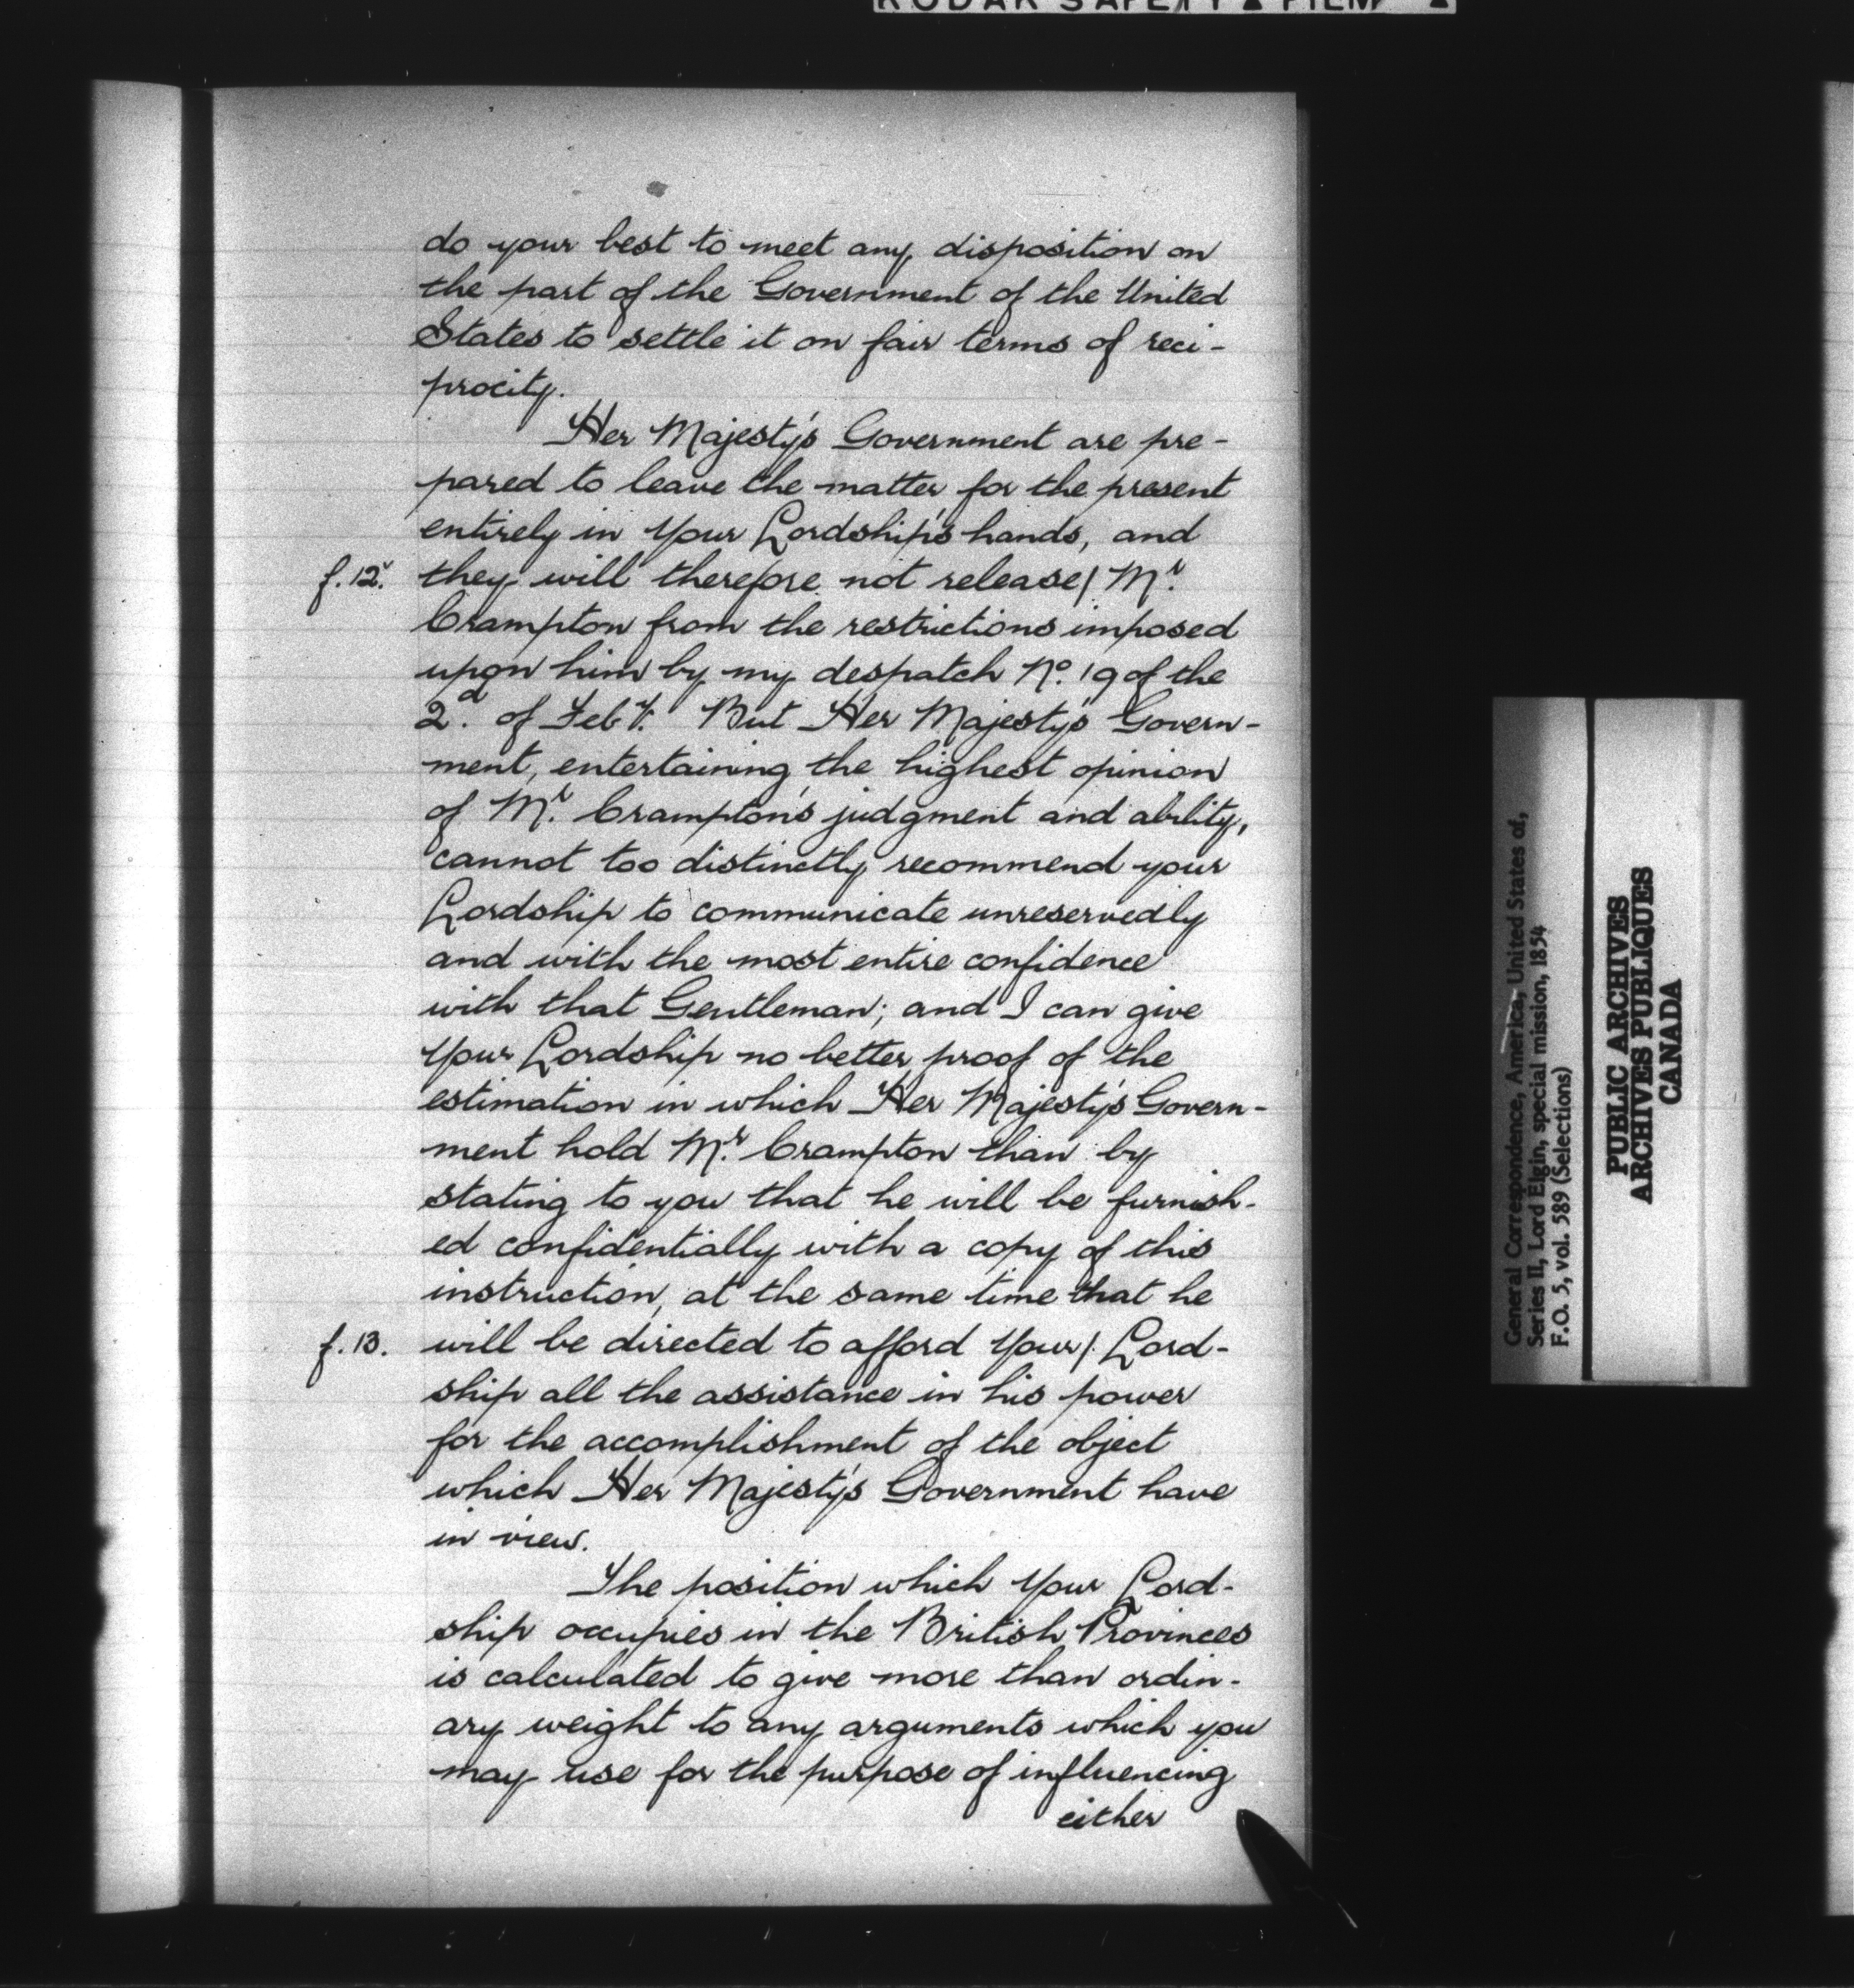 KODAK SAFETY ▲ FILM ▲
do your best to meet any disposition on
the part of the Government of the United
States to settle it on fair terms of reci-
procity.
Her Majesty's Government are pre-
pared to leave the matter for the present
entirely in Your Lordship's hands, and
f.12v. they will therefore not release/ Mr.
Crampton from the restrictions imposed
upon him by my despatch No. 19 of the
2d. of Feby. But Her Majesty's Govern-
ment, entertaining the highest opinion
of Mr. Crampton's judgment and ability,
cannot too distinctly recommend your
Lordship to communicate unreservedly
and with the most entire confidence
with that Gentleman; and I can give
Your Lordship no better proof of the
estimation in which Her Majesty's Govern-
ment hold Mr. Crampton than by
stating to you that he will be furnish-
ed confidentially with a copy of this
instruction, at the same time that he
f.13. will be directed to afford Your/ Lord-
ship all the assistance in his power
for the accomplishment of the object
which Her Majesty's Government have
in view.
The position which Your Lord-
ship occupies in the British Provinces
is calculated to give more than ordin-
ary weight to any arguments which you
may use for the purpose of influencing
either
General Correspondence, America, United States of,
Series II, Lord Elgin, special mission, 1854
F.O. 5, vol. 589 (Selections)
PUBLIC ARCHIVES
ARCHIVES PUBLIQUES
CANADA